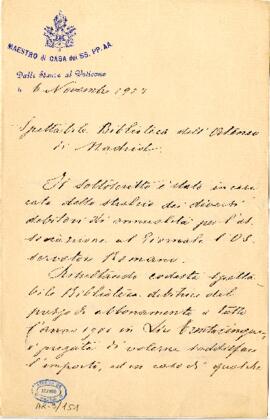 MAESTRO di CASA dei SS. PP. AA.
Dalle Stanze al Vaticano
li 6 Novembre
Spettabile Biblioteca dell'Ateneo
di Madrid.
Il sottoscritto è stato incari
cato dello stralcio dei diversi
debitori di annualità per l'as
sociazione al Giornale l'Os
servatore Romano.
Risultando codesta Spetta
bile Biblioteca debitrice del
prezzo di abbonamento a tutto
l'anno 1900 in Lire
è pregata di volerne soddisfare
l'importo, ed in caso di qualche